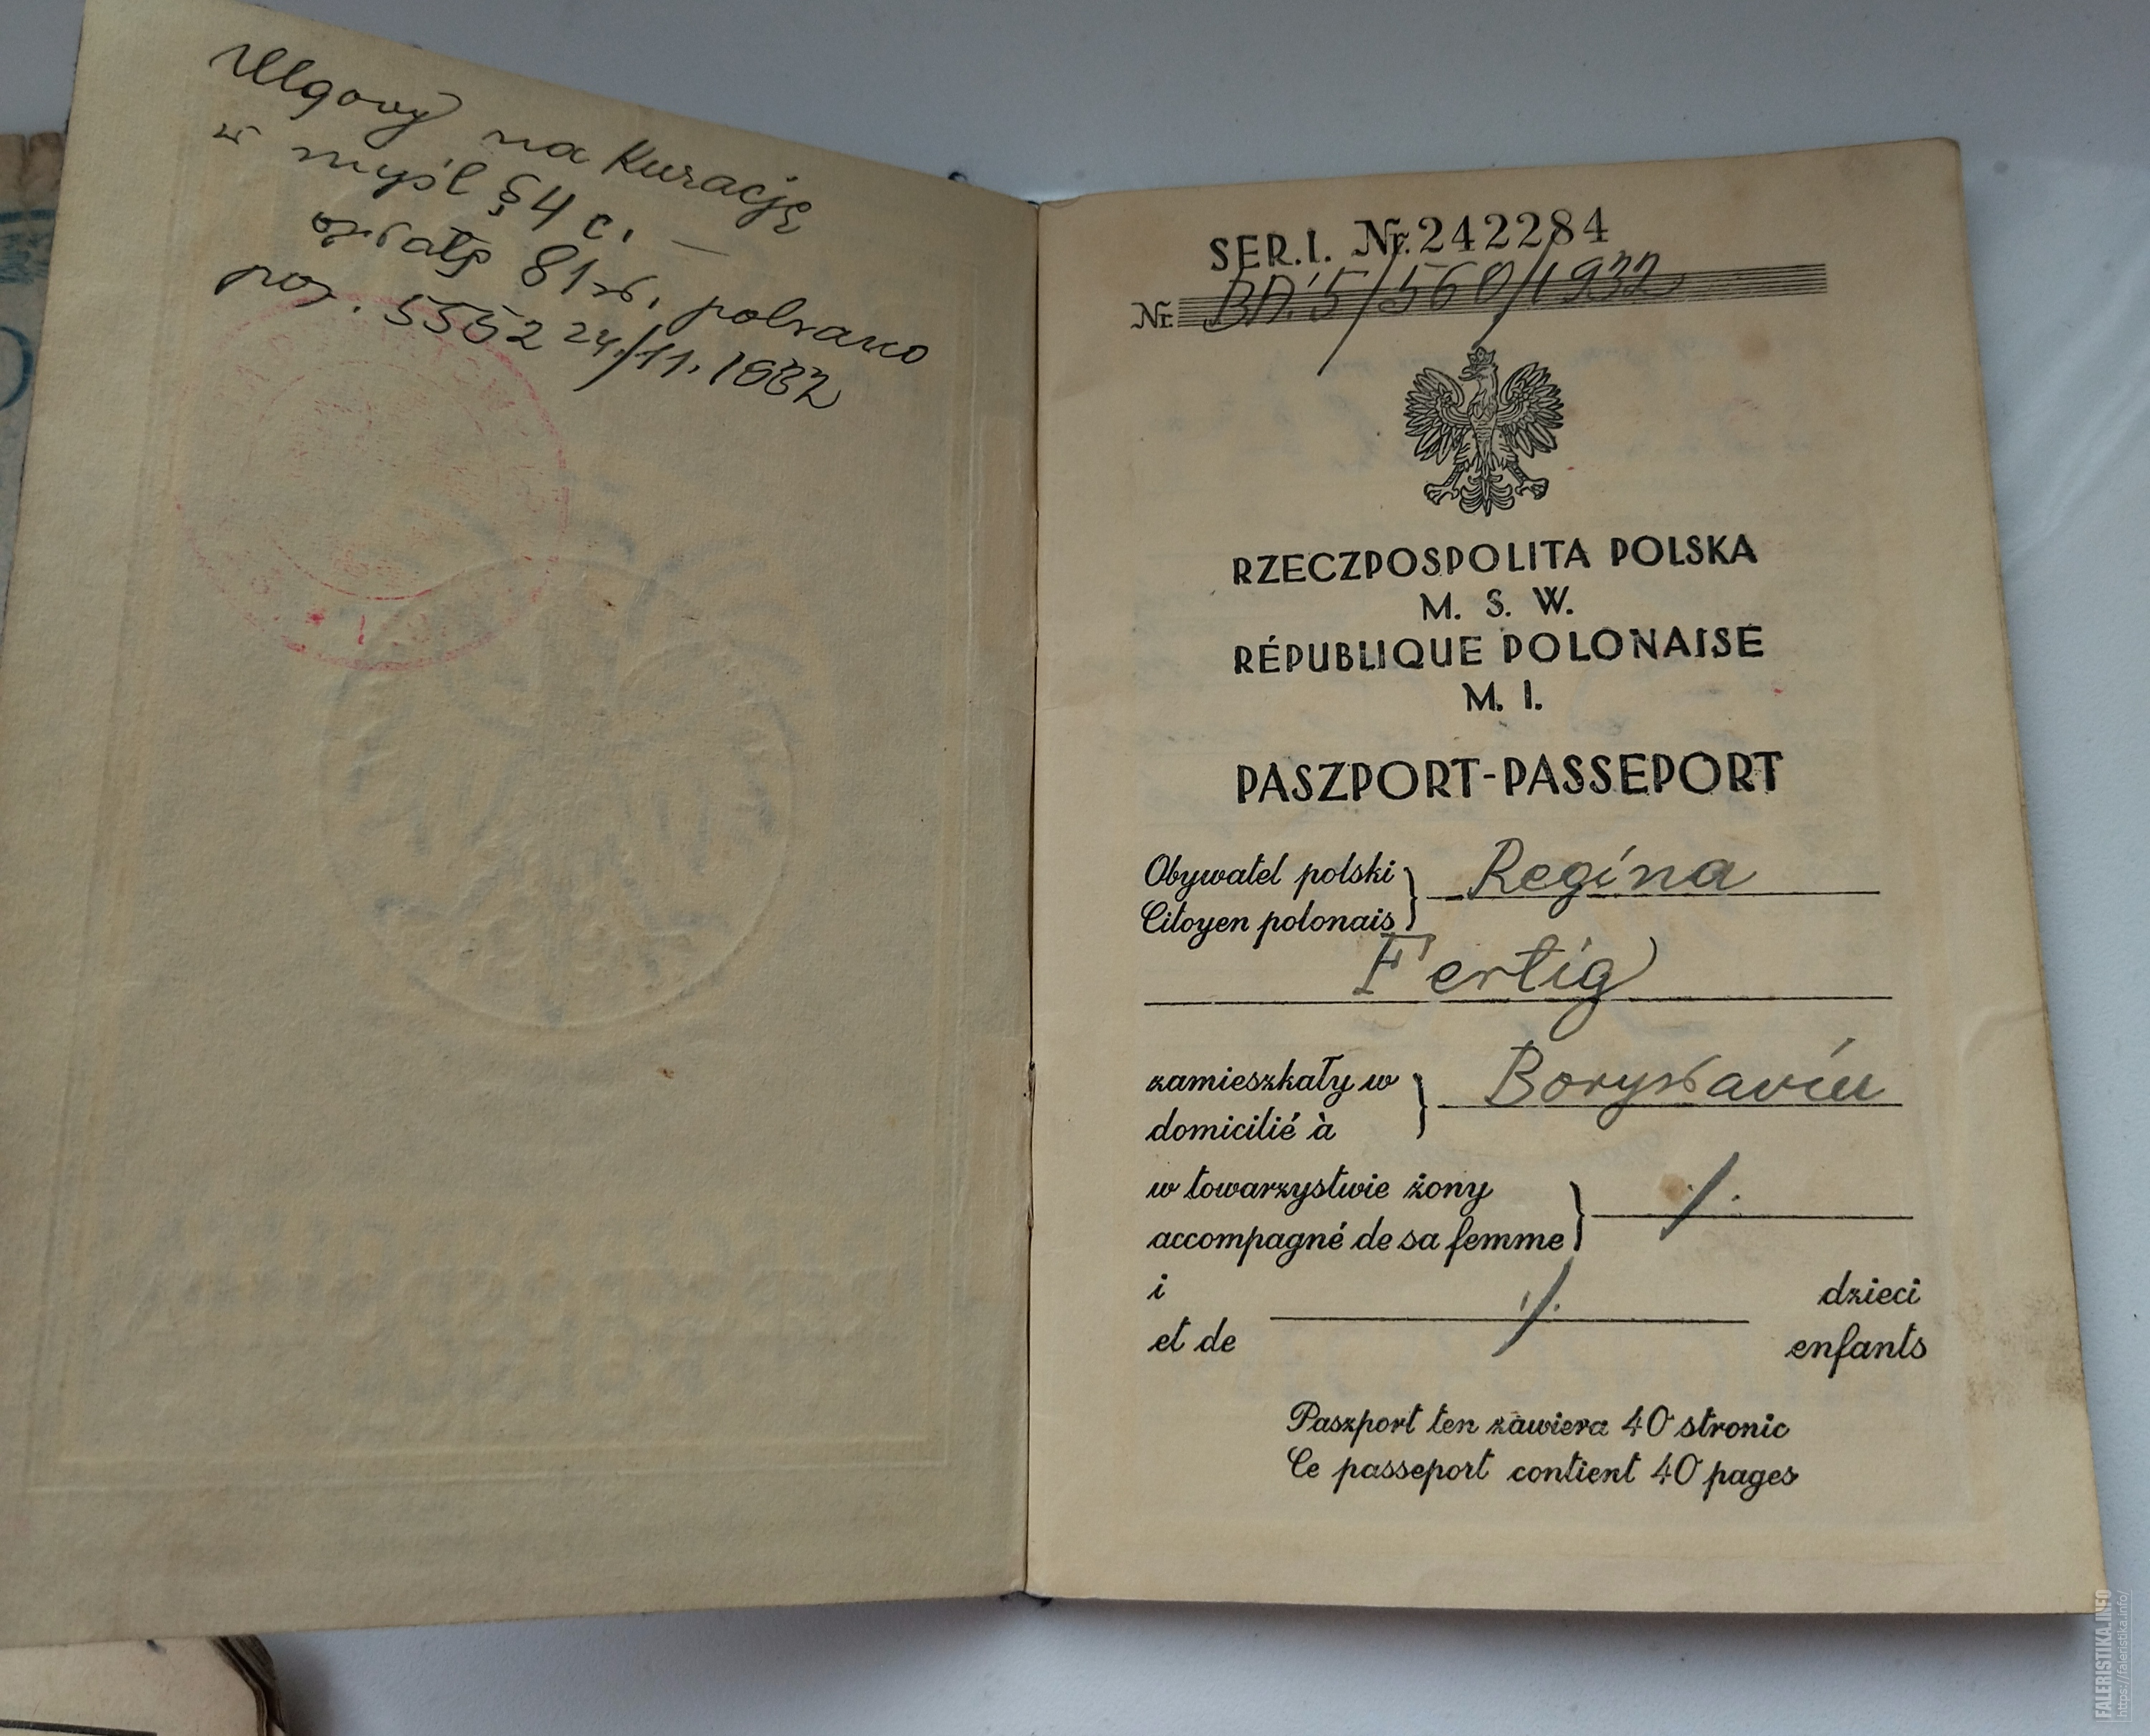 Ulgowy na Kurację
w myśl §4 c. —
opłatę 81 zł. pobrano
poz. 5552 24/11. 1932
SER.I. Nr. 242284
Nr. B.A. 5/560/1932
RZECZPOSPOLITA POLSKA
M. S. W.
RÉPUBLIQUE POLONAISE
M. I.
PASZPORT-PASSEPORT
Obywatel polski Regina
Citoyen polonais
Fertig
zamieszkały w Borysławiu
domicilié à
w towarzystwie żony ./.
accompagné de sa femme
i ./. dzieci
et de enfants
Paszport ten zawiera 40 stronic
Ce passeport contient 40 pages
FALERISTIKA.INFO
https://faleristika.info/